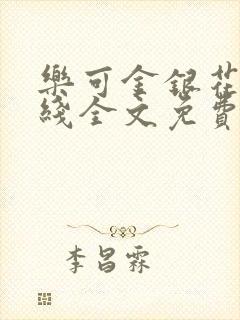 樂可金銀花
綫全文免費
李昌霖